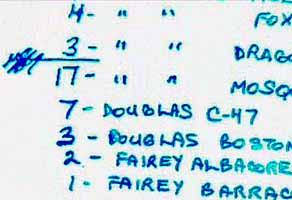 4- " " FOX
3- " " DRAGO
17- " " MOSQ
7- DOUBLAS C-47
3- DOUBLAS BOSTON
2- FAIREY ALBACORE
1- FAIREY BARRAC